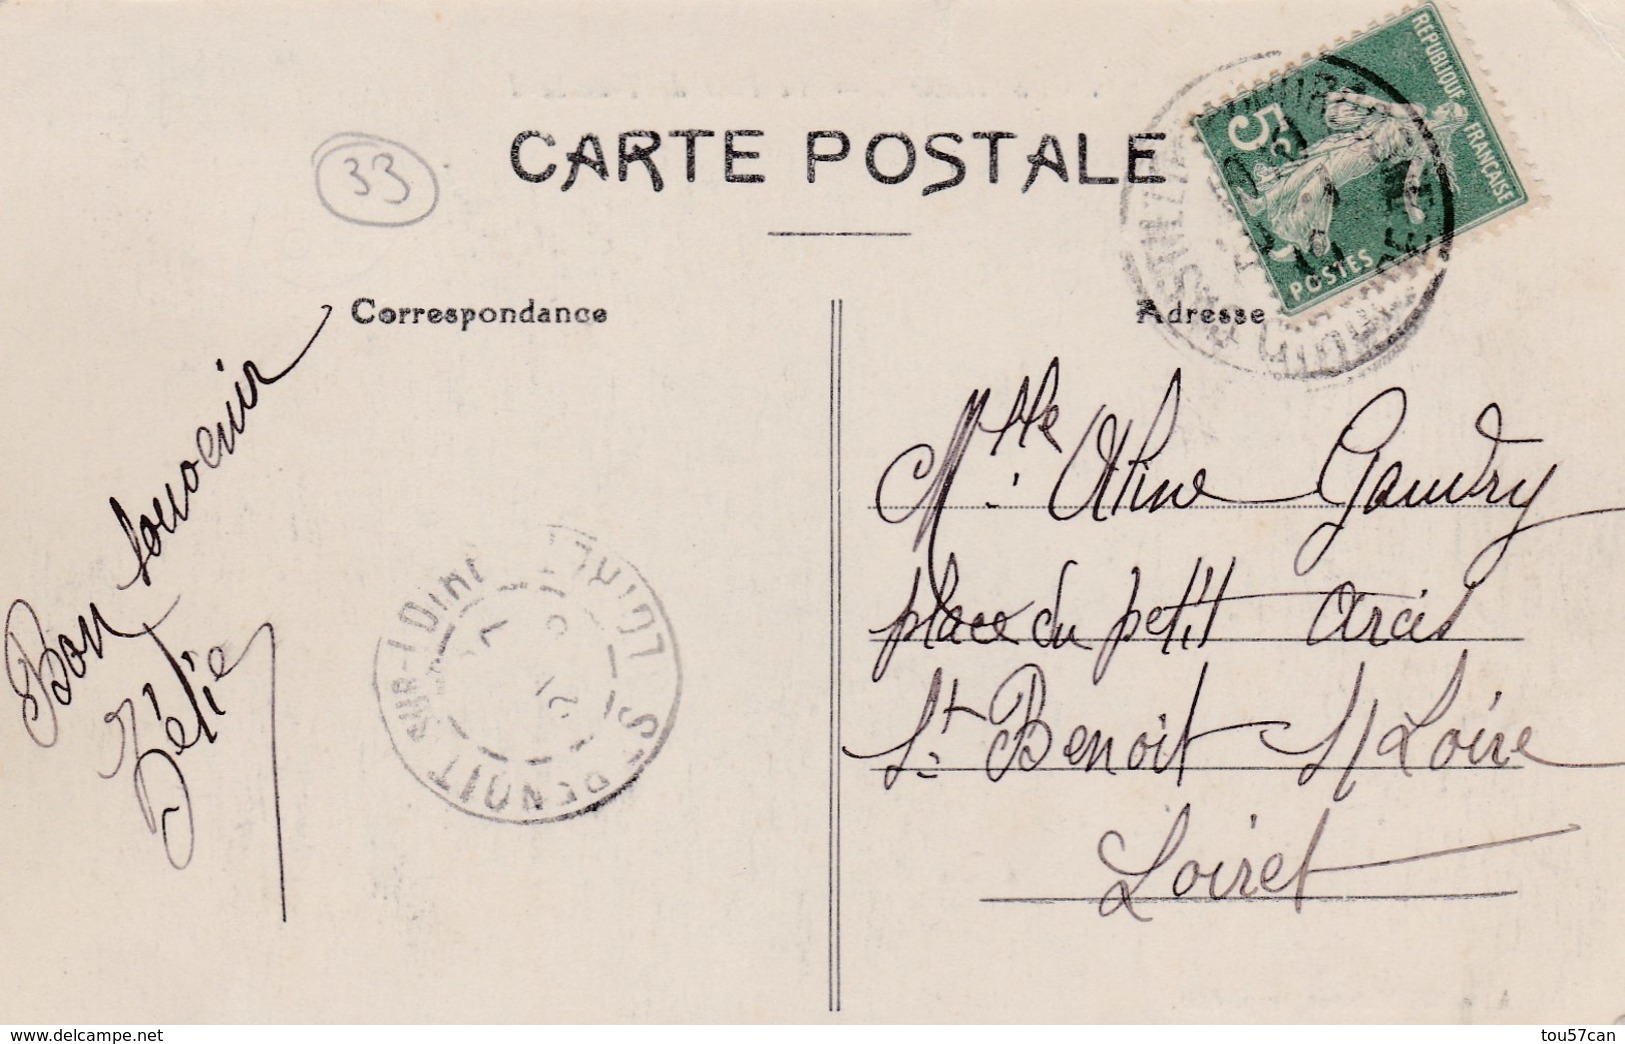 33
CARTE POSTALE
RÉPUBLIQUE FRANÇAISE
5
POSTES
Correspondance
Adresse
Bon souvenir
Zélie
Mlle Aline Gaudry
place du petit Arcis
St Benoit s/ Loire
Loiret
ST BENOIT SUR-LOIRE LOIRET
delcampe.net
tou57can